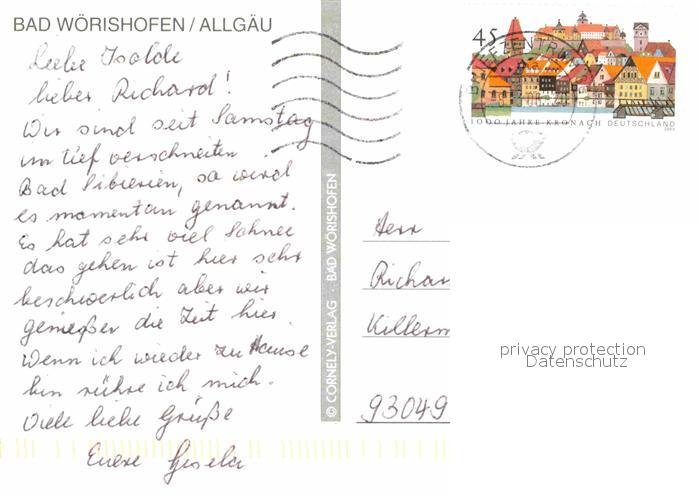 BAD WÖRISHOFEN / ALLGÄU
Liebe Isolde
lieber Richard!
Wir sind seit Samstag
im tief verschneiten
Bad Sibierien, so wird
es momentan genannt.
Es hat sehr viel Schnee
das gehen ist hier sehr
beschwerlich aber wir
genießen die Zeit hier.
Wenn ich wieder zu Hause
bin rühre ich mich.
Viele liebe Grüße
Euere Gisela
© CORNELY-VERLAG · BAD WÖRISHOFEN
45
BRIEFZENTRUM
1000 JAHRE KRONACH DEUTSCHLAND
2003
Herr
Richar
Killerm
93049
privacy protection
Datenschutz